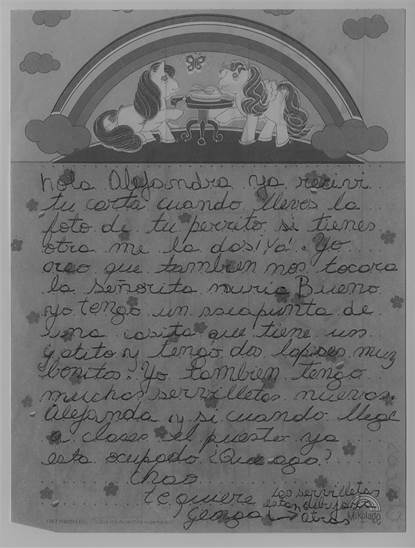 hola Alejandra ya recivi
tu carta cuando lleves la
foto de tu perrito si tienes
otra me la das ¡Ya! Yo
creo que tambien nos tocara
la señorita muria Bueno
yo tengo un sacapunta de
una casita que tiene un
gatito y tengo dos lapises muy
bonitos. Yo tambien tengo
muchas servilletas nuevas.
Alejanda y si cuando llege
a clases el puesto ya
esta ocupado ¿Que ago?
chao
te quiere
las servilletas
estan dibujadas
atras
Mikolapp